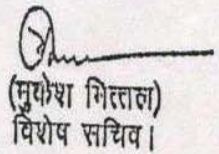 (मुकेश मित्तल)
विशेष सचिव।